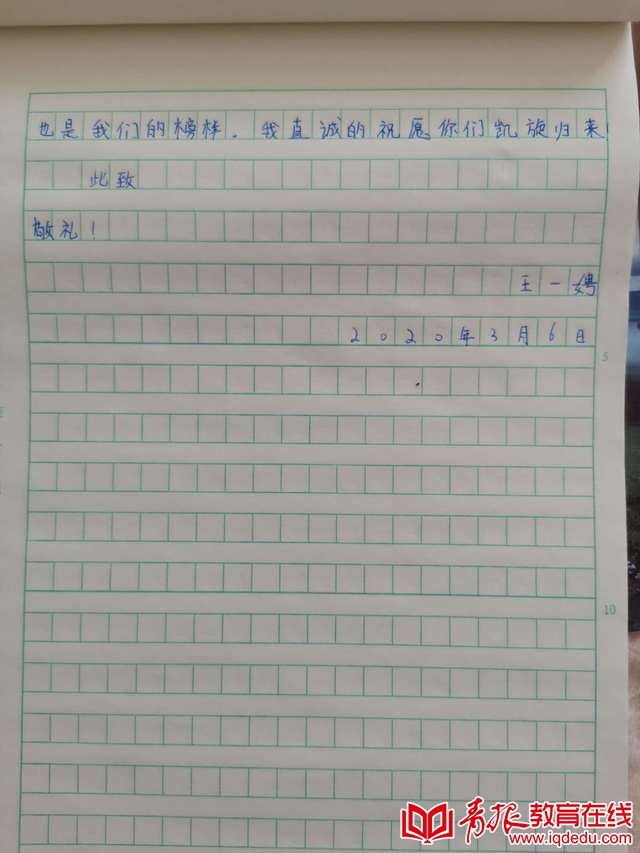 也是我们的榜样。我真诚的祝愿你们凯旋归来！
此致
敬礼！
王一娉
2020年3月6日
5
10
青报教育在线
www.iqdedu.com